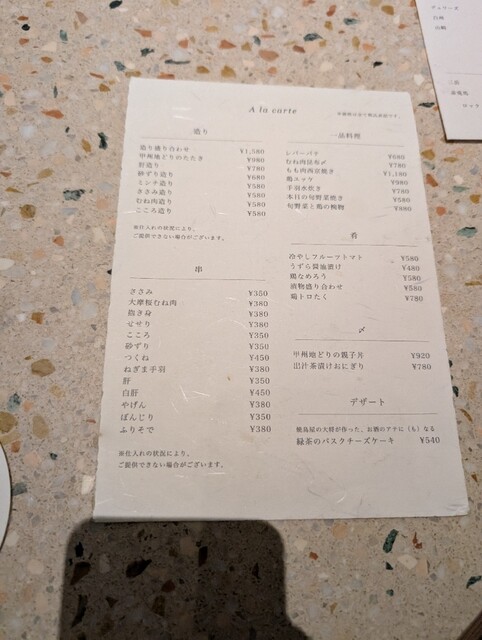 A la carte
造り
造り盛り合わせ ¥1,580
甲州地どりのたたき ¥980
肝造り ¥780
砂ずり造り ¥680
ミシチ造り ¥580
ささみ造り ¥580
むね肉造り ¥580
こころ造り ¥580
※仕入れの状況により、
ご提供できない場合がございます。
串
ささみ ¥350
大摩桜むね肉 ¥380
抱き身 ¥380
せせり ¥380
こころ ¥350
砂ずり ¥350
つくね ¥450
ねぎま手羽 ¥380
肝 ¥350
白肝 ¥450
やげん ¥380
ぼんじり ¥350
ふりそで ¥380
※仕入れの状況により、
ご提供できない場合がございます。
一品料理
レバーパテ ¥680
むね肉昆布〆 ¥780
もも肉西京焼き ¥1,180
鶏ユッケ ¥980
手羽水炊き ¥780
本日の旬野菜焼き ¥580
旬野菜と鶏の椀物 ¥880
肴
冷やしフルーツトマト ¥580
うずら醤油漬け ¥480
鶏なめろう ¥580
漬物盛り合わせ ¥580
鶏トロたく ¥780
〆
甲州地どりの親子丼 ¥920
出汁茶漬けおにぎり ¥780
デザート
の大将が作った、お酒のアテに(も)なる
緑茶のバスクチーズケーキ ¥540